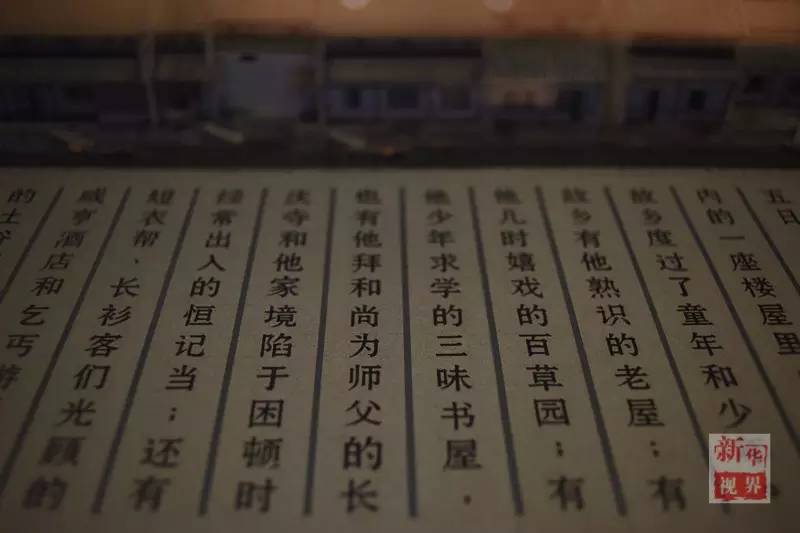 五日
内的一座楼屋里
故乡度过了童年和少
故乡有他熟识的老屋；有
他儿时嬉戏的百草园；有
他少年求学的三味书屋，
也有他拜和尚为师父的长
庆寺和他家境陷于困顿时
经常出入的恒记当；还有
短衣帮、长衫客们光顾的
咸亨酒店和乞丐游
的土谷
新华
视界